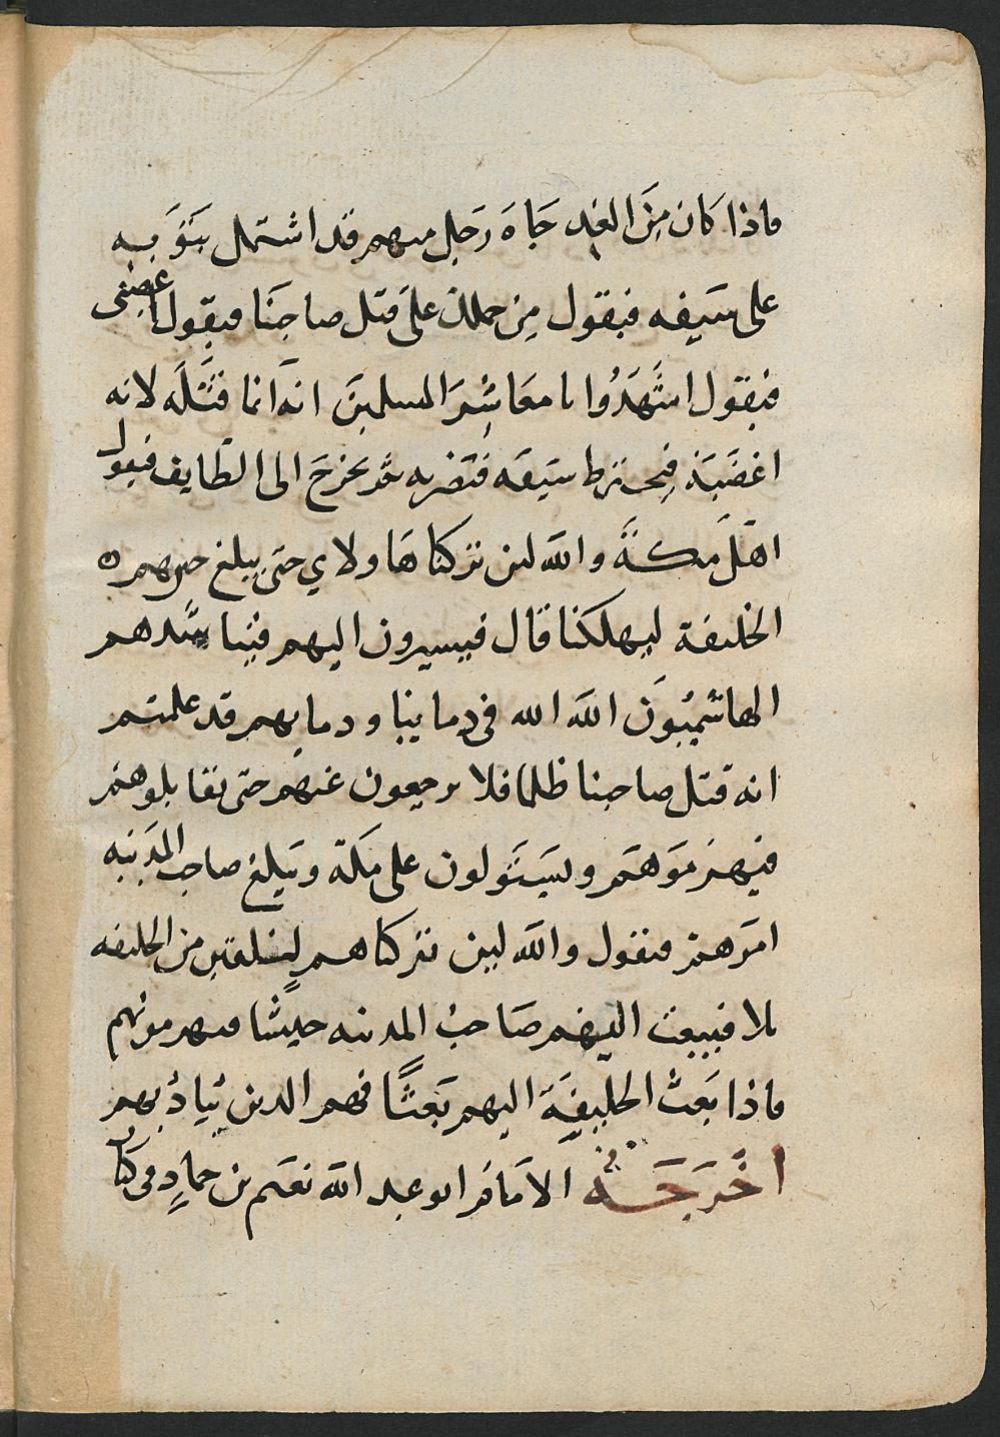 فاذا كان من الغد جاه رجل منهم قد اشتمل بثوبه
على سيفه فيقول من حملك على قتل صاحبنا فيقول اغضبني
فيقول اشهدوا يا معاشر المسلمين انه انما قتله لانه
اغضبه فيخترط سيفه فيضربه ثم يخرج الى الطايف فيقول
اهل مكة والله لئن تركنا هاولاي حتى يبلغ خبرهم
الخليفة ليهلكنا قال فيسيرون اليهم فيناشدهم
الهاشميون الله الله في دماينا ودمايهم قد علمتم
انه قتل صاحبنا ظلما فلا يرجعون عنهم حتى يقاتلوهم
فيهزموهم ويستولون على مكة ويبلغ صاحب المدينه
امرهم فيقول والله لين تركناهم لنلقين من الخليفه
بلا فيبعث اليهم صاحب المدينه جيشا فيهزمونهم
فاذا بعث الخليفة اليهم بعثا فهم الذين يباد بهم
اخرجه الامام ابو عبد الله نعيم بن حماد في كتاب